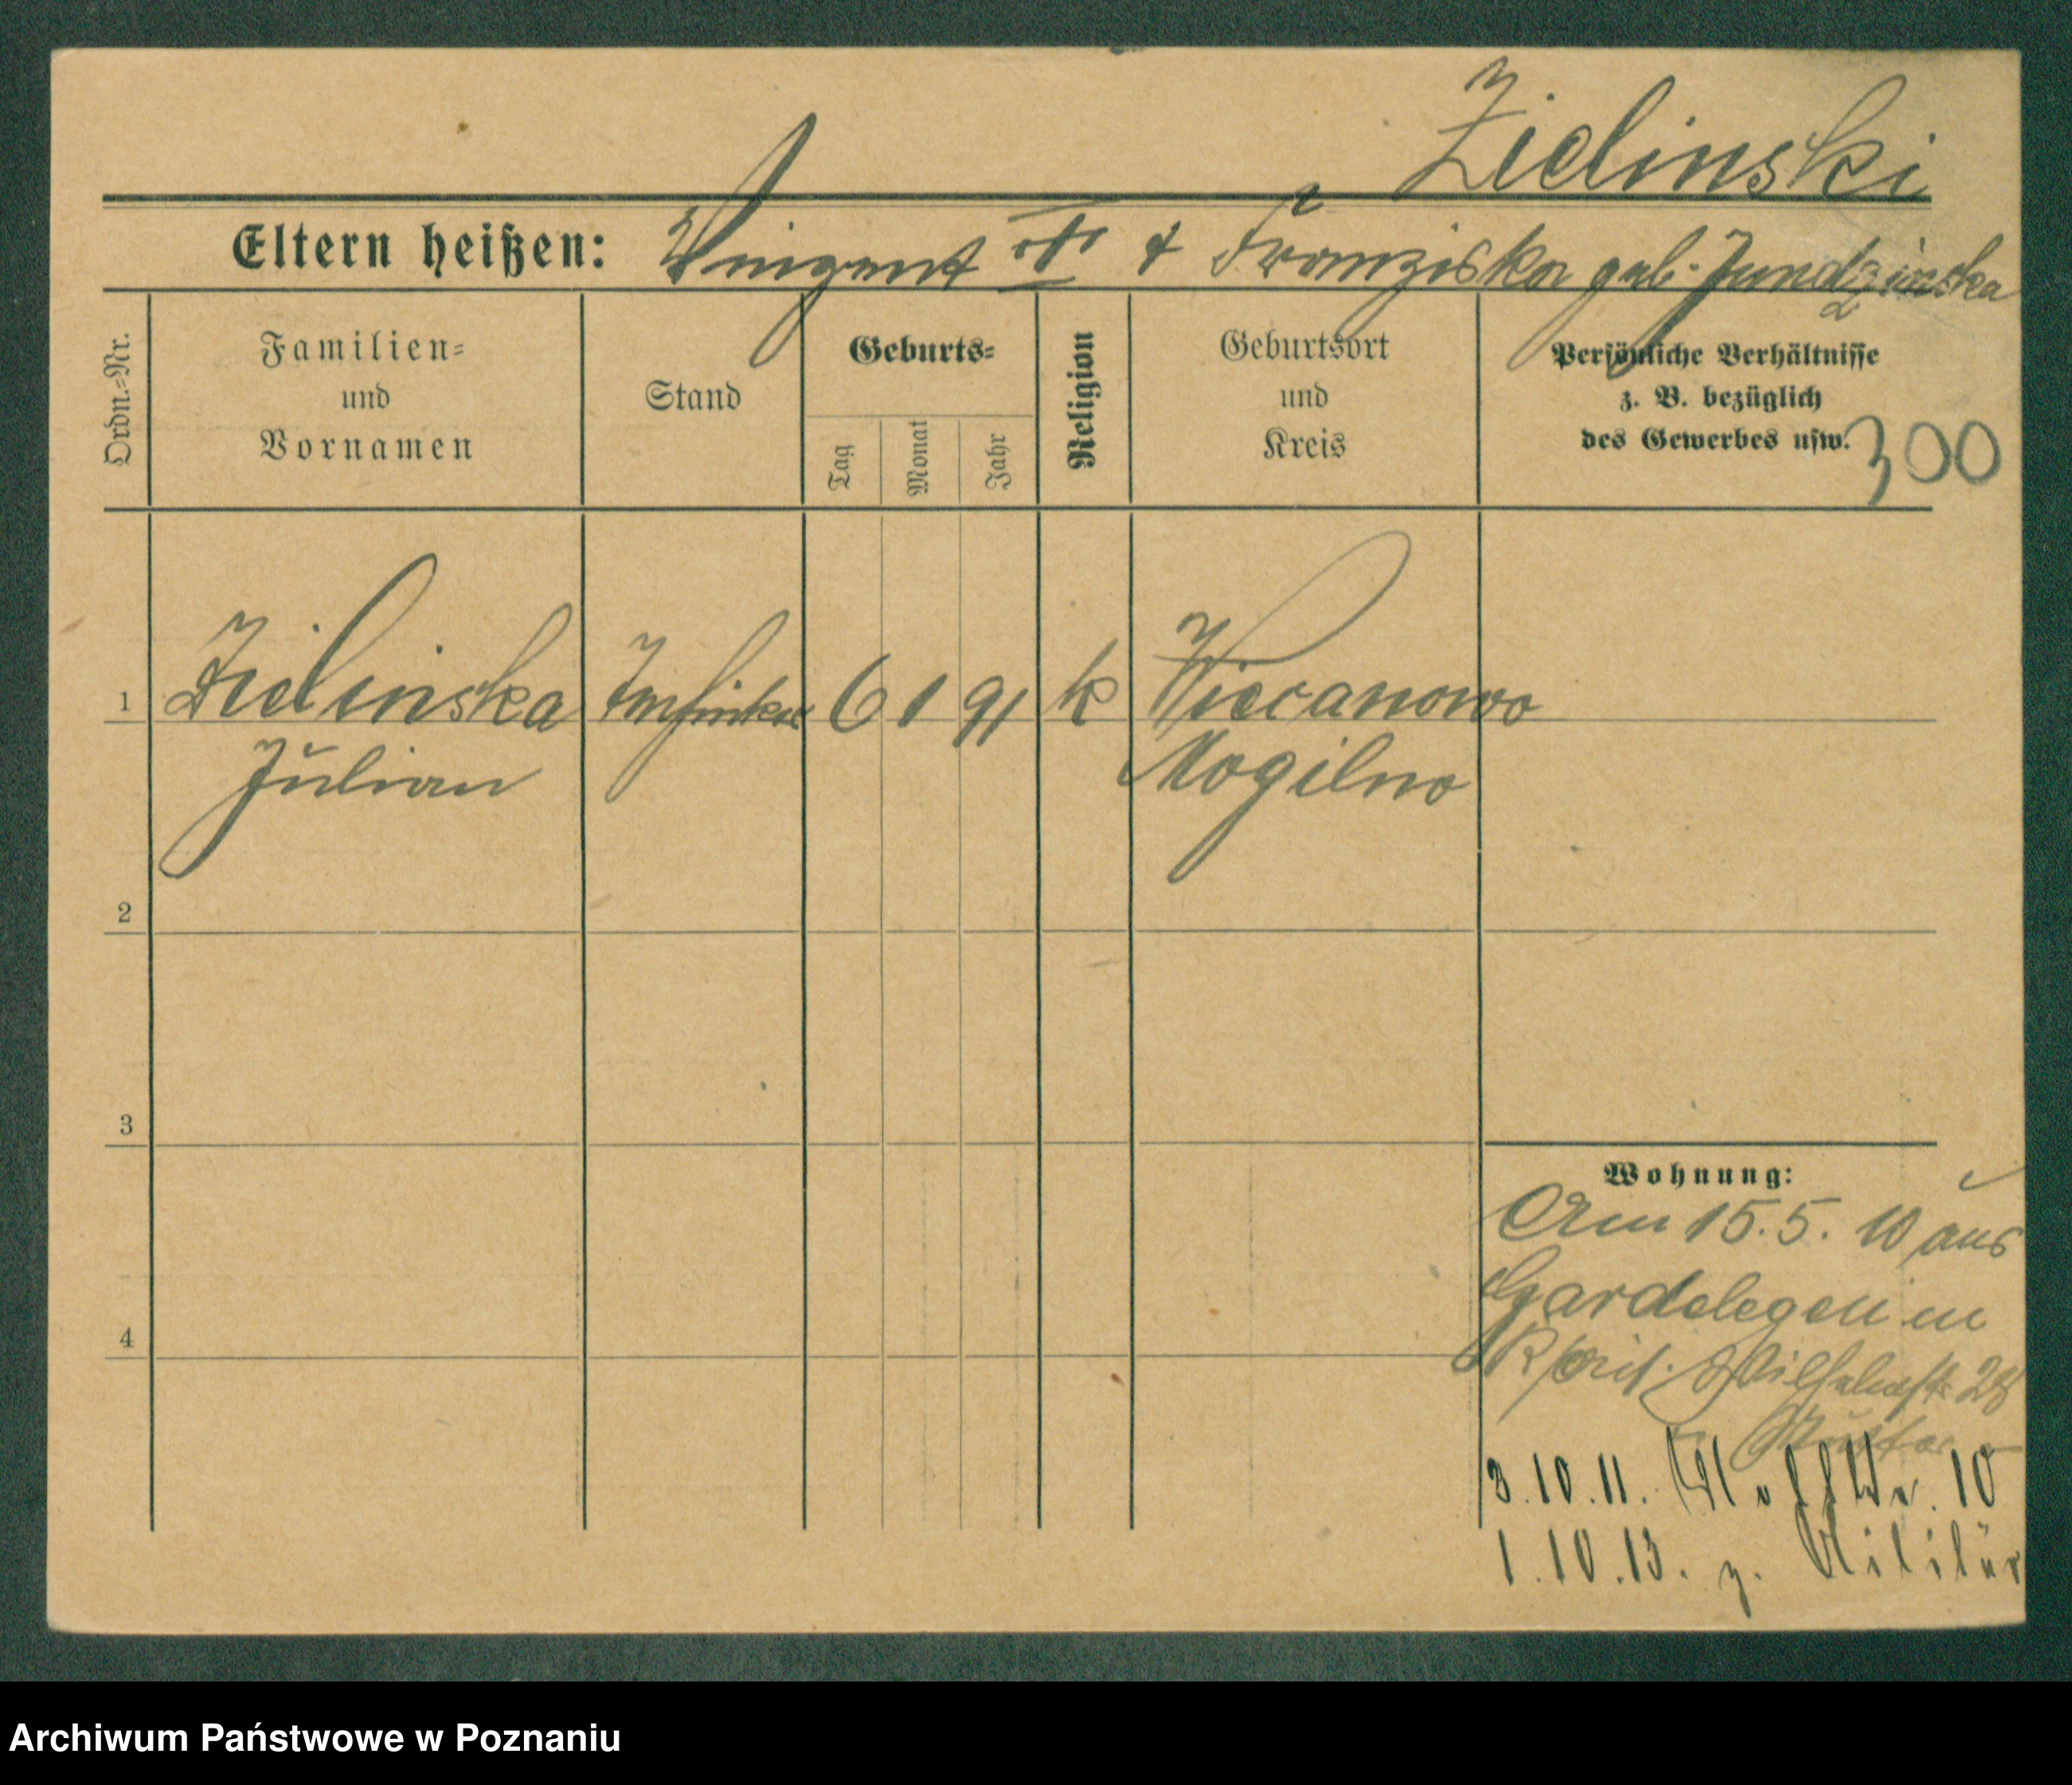 Zielinski
Eltern heißen: Vinzent & Franziska geb.
Ordn.=Nr.
Familien=
und
Vornamen
Stand
Geburts=
Tag
Monat
Jahr
Religion
Geburtsort
und
Kreis
Persönliche Verhältnisse
z. B. bezüglich
des Gewerbes usw.
300
1 Zielinska 6 1 91 k Wiecanowo
Julian Mogilno
2
3
4
Wohnung:
Am 15.5.10 aus
Gardelegen in
28
3.10.11. 10
1.10.13. z. Militär
Archiwum Państwowe w Poznaniu